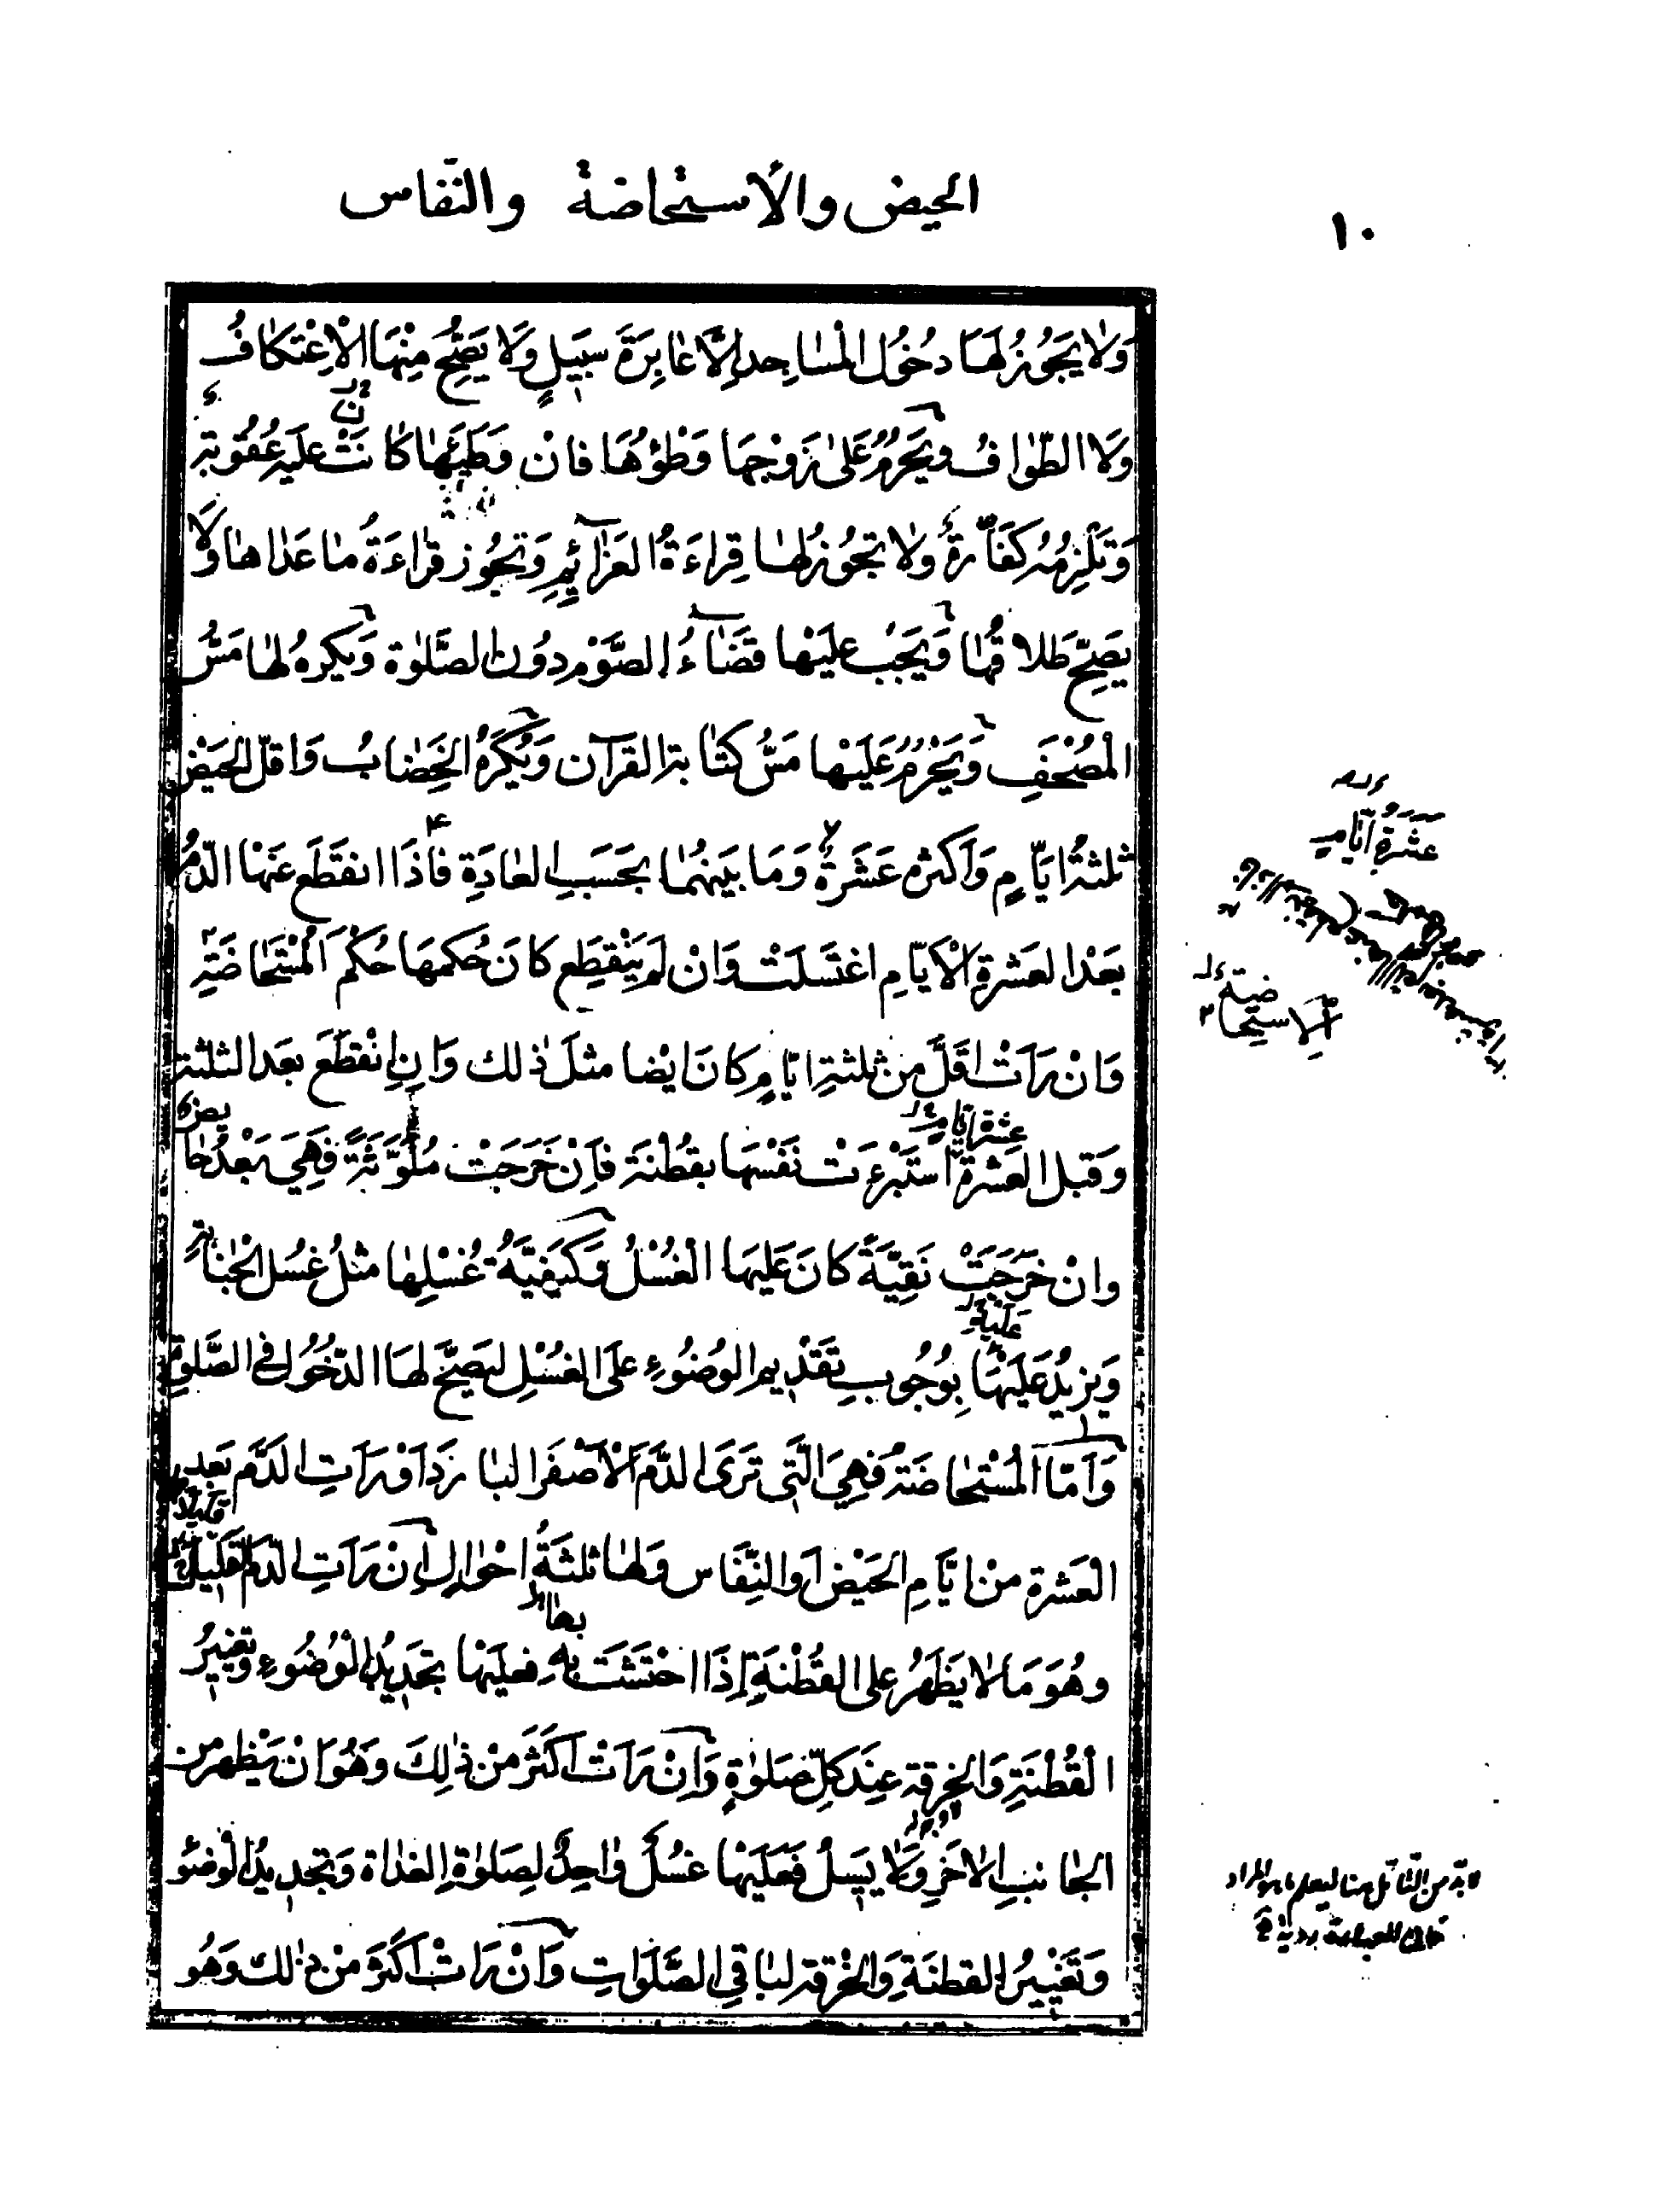 ١٠
الحيض والأستحاضة والنّفاس
وَلٰا يَجُوزُ لَهَا دخُولُ الْمَسٰاجِدِ اِلَّا عٰابِرَةَ سبَيلٍ وَلَا يَصَحُّ مِنْهَا الْاِعْتكٰافُ
وَلَا الطّوٰافُ وَيَحْرُمُ عَلىٰ زَوْجِهَا وَطْؤُهَا فانْ وَطَئَهٰا كانَتْ عليَهِ عُقُوبة
وَتَلْزِمُهُ كَفّٰارةٌ وَلٰا تجُوزُ لهٰا قِراءَةُ العَزٰآئِمِ وَتَجُوز قرٰاءَةُ مٰا عَدٰاهٰا وَلَا
يَصَحّ طَلاقُهٰا وَيَجبُ عليَهْا قَضٰآءُ الصَّوْمِ دوُن الصَّلوٰة وَيكرهُ لهٰا مَسُّ
الْمُصْحَفِ وَيَحْرُمُ عَليَهْا مَسُّ كتٰابة القرآن وَيُكْرَهُ الخَضٰابُ وَاقلّ الحَيَضْ
ثلثةُ ايّٰامٍ وَاَكثره عَشَرَةٌ وَمَا بيَنهُمٰا بحَسَبِ العٰادَةِ فاذَا انقَطَع عَنهْا الدّمُ
بَعْدَ العَشرةِ الْاَيّامِ اغتَسَلَتْ وَانْ لَم يَنْقَطِع كانَ حُكمهَا حُكْم اَلمُسْتَحٰاضَةِ
وَانْ رَاَتْ اقَلَّ من ثلثةِ ايّامٍ كانَ ايضا مثلَ ذٰلك وَانِ انْقطَعَ بعَد الثلثة
وَقبل العَشرة استَبْرءَت نفَسْهَا بقُطْنَة فاِن خَرَجَتْ مُلَوَّثَةً فَهِيَ بَعْدُ حٰايض
وانْ خَرَجَتْ نَقِيَّةً كانَ عَليَهَا الْغُسْلُ وَكَيفيَّةُ غُسْلِهٰا مثلُ غسُل الْجَنٰابة
وَيزيدُ عَليَهْا بِوُجُوبِ تقَدْيم الوُضوُءِ علَى الغسُلِ ليَصَحَّ لهَا الدّخُول في الصَّلوٰة
وَاَمّا الْمُسْتَحٰاضَة فَهِيَ الَّتي تَرَى الدَّمَ الْاَصْفَرَ البٰارِدَ اَوْ رَاَتِ الدَّم بَعد
الْعَشرة منْ ايّامِ الحَيْض اَو النِّفَاس وَلهٰا ثلثَةُ احْوٰالٍ اِنْ رَاَتِ الدّمَ القَليلَ
وهُوَ مَا لٰا يَظَهَرُ على القُطْنَةِ اِذَا احْتَشَتَ بهِ فعليَهْا تجَديدُ الْوُضُوءِ وَتغييرُ
الْقُطْنَةِ وَالخِرقة عِندَ كلِّ صَلوٰةٍ وَاِنْ رَاَتْ اَكثَرَ مِنْ ذٰلِكَ وَهُوَ انْ يَظهر من
الجٰانبِ الاٰخَرِ وَلَا يسَيلُ فعَليَهْا غسُلٌ وٰاحِدٌ لِصَلوٰةِ الغدٰاة وَتجديدُ الْوضوُ
وَتغَييرُ القطنَةِ وَالخرْقة لبٰاقِي الصَّلَوٰاتِ وَانْ رَاَتْ اَكثَرَ مِنْ ذٰلك وَهُو
عَشَرَةُ اَيّٰامٍ
الاستحاضة
عشرة ايام
عليه
بها
لابدّ من التّامّل هنا ليعلم ما هو المراد